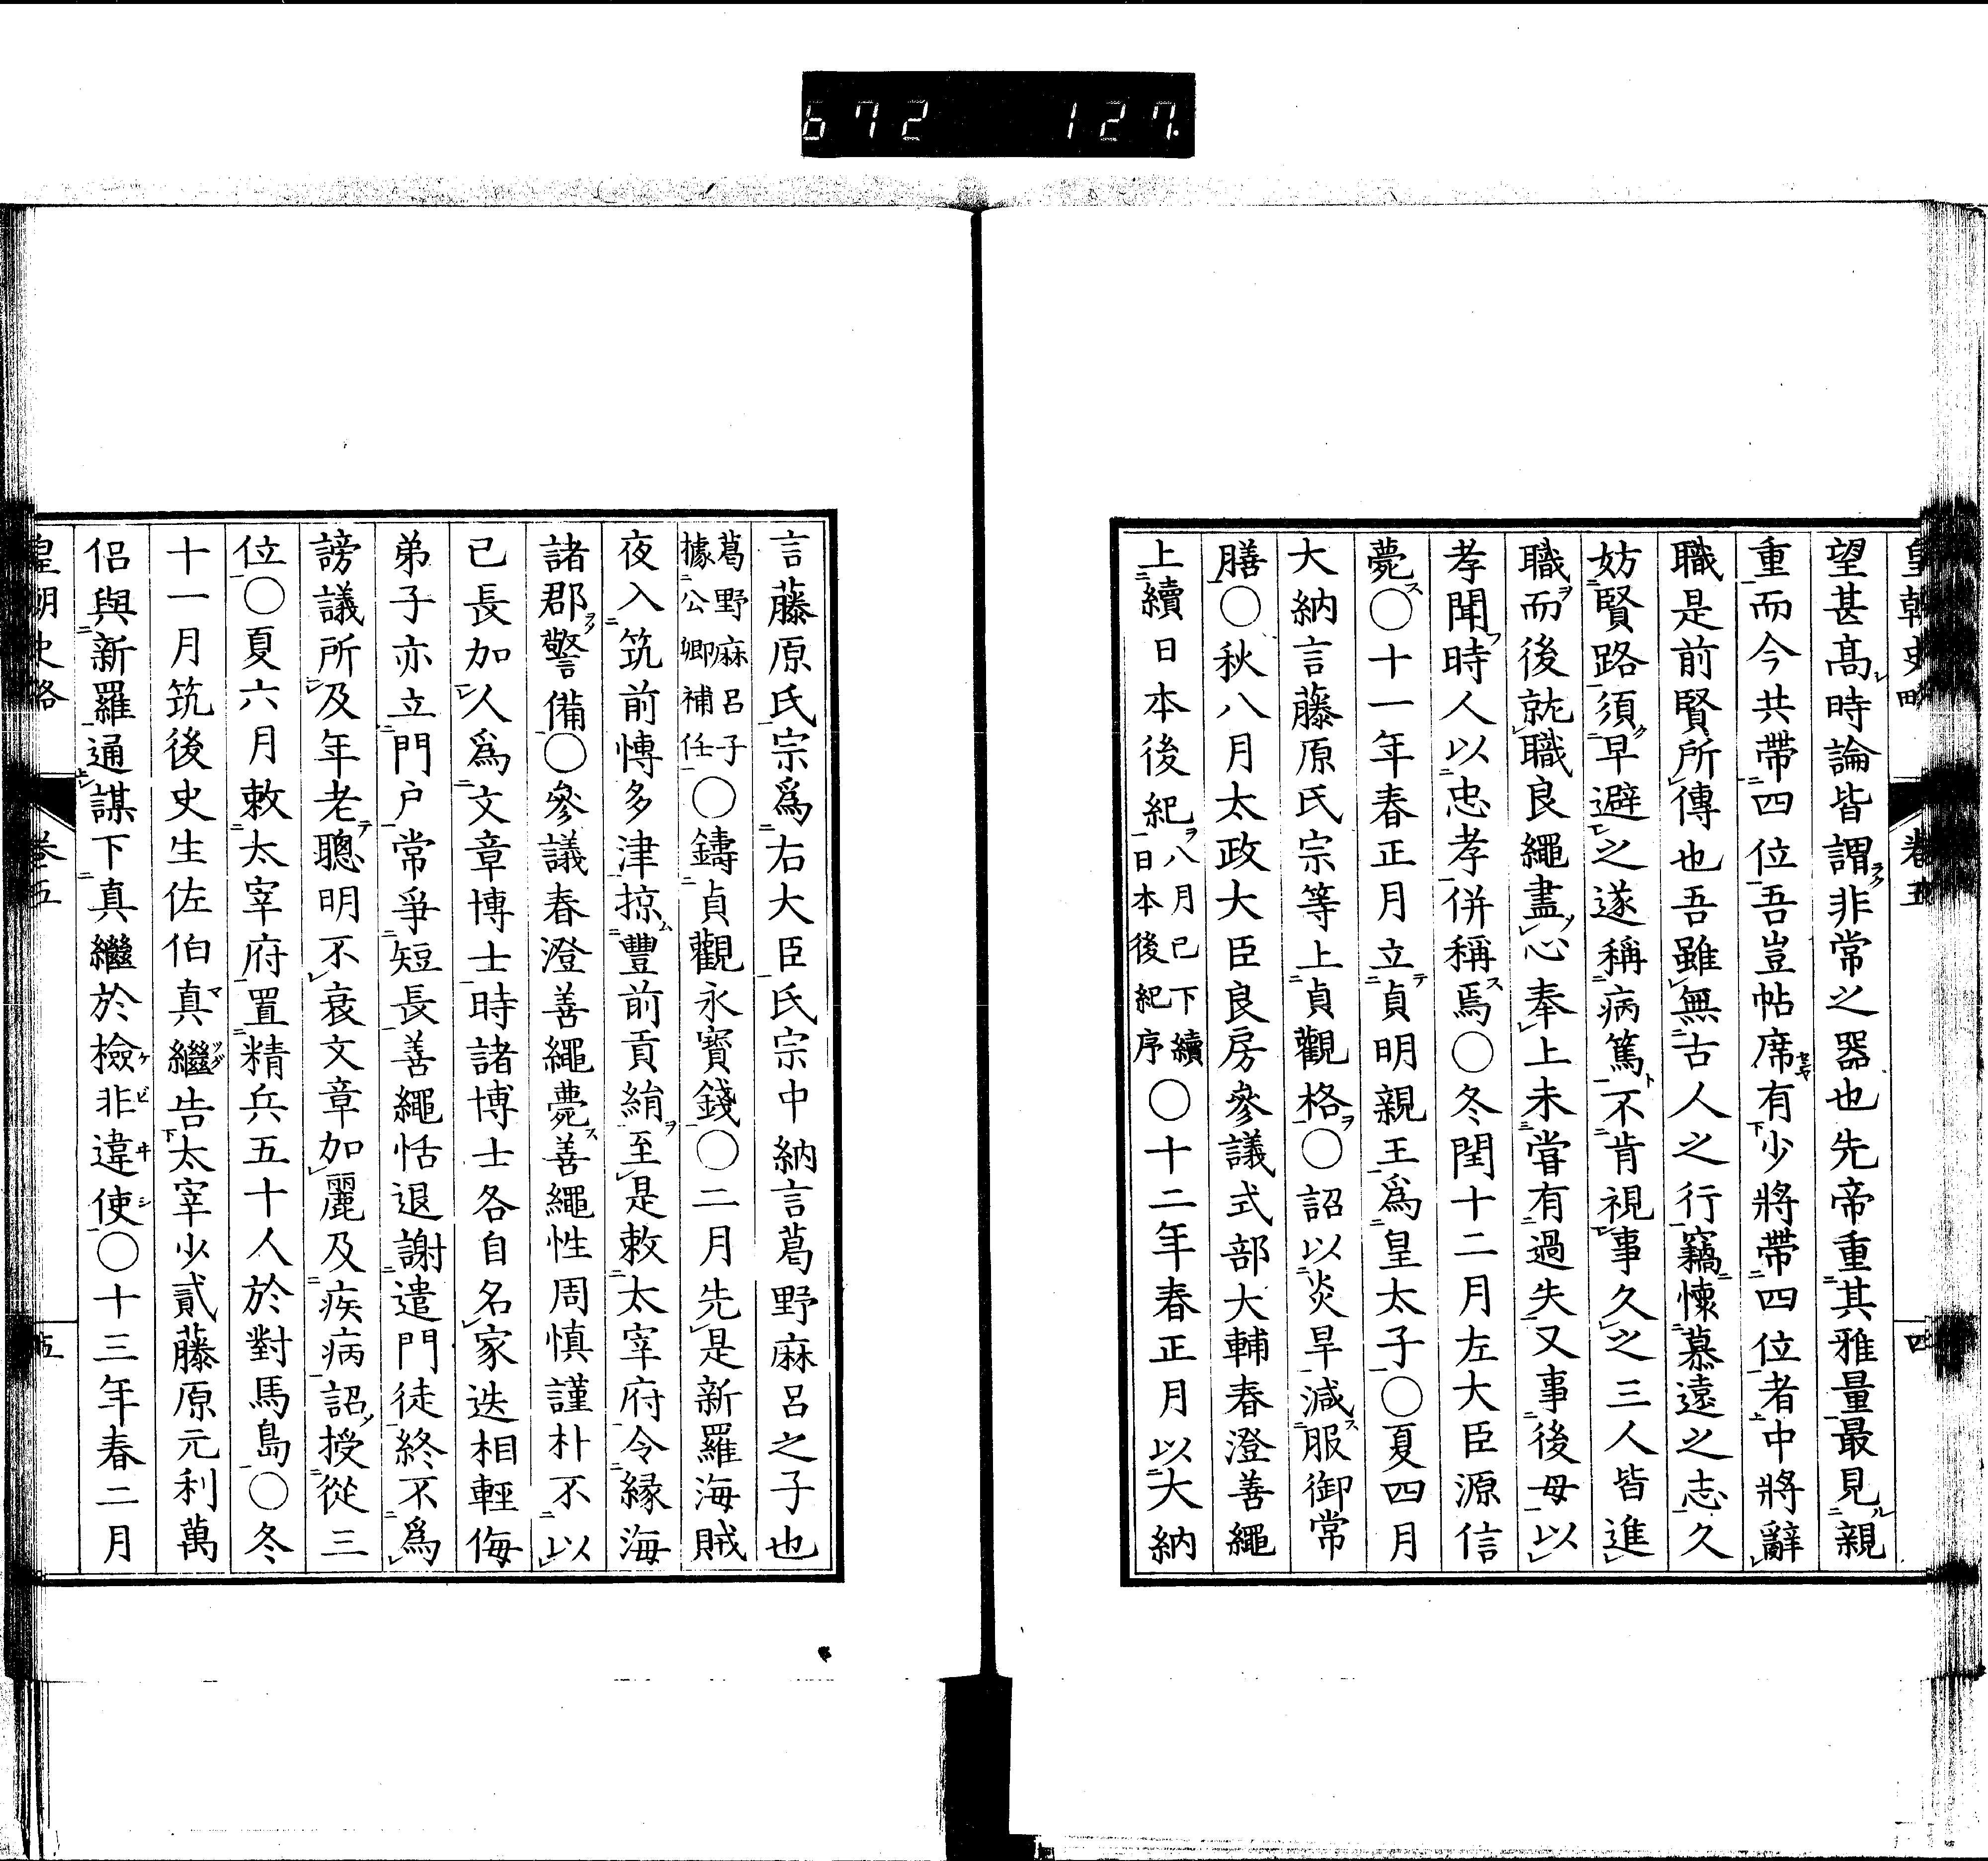 672 127
皇朝史略 卷五 四
望甚高時論皆謂非常之器也先帝重其雅量最見親
重而今共帶四位吾豈帖席有少將帶四位者中將辭
職是前賢所傳也吾雖無古人之行竊懷慕遠之志久
妨賢路須早避之遂稱病篤不肯視事久之三人皆進
職而後就職良繩盡心奉上未嘗有過失又事後母以
孝聞時人以忠孝併稱焉〇冬閏十二月左大臣源信
薨〇十一年春正月立貞明親王爲皇太子〇夏四月
大納言藤原氏宗等上貞觀格〇詔以炎旱減服御常
膳〇秋八月太政大臣良房參議式部大輔春澄善繩
上續日本後紀八月已下續日本後紀序〇十二年春正月以大納
言藤原氏宗爲右大臣氏宗中納言葛野麻呂之子也
葛野麻呂子據公卿補任〇鑄貞觀永寳錢〇二月先是新羅海賊
夜入筑前博多津掠豐前貢絹至是敕太宰府令緣海
諸郡警備〇參議春澄善繩薨善繩性周慎謹朴不以
己長加人爲文章博士時諸博士各自名家迭相輕侮
弟子亦立門戸常爭短長善繩恬退謝遣門徒終不爲
謗議所及年老聰明不衰文章加麗及疾病詔授從三
位〇夏六月敕太宰府置精兵五十人於對馬島〇冬
十一月筑後史生佐伯真繼告太宰少貳藤原元利萬
侶與新羅通謀下真繼於檢非違使〇十三年春二月
皇朝史略 卷五 五